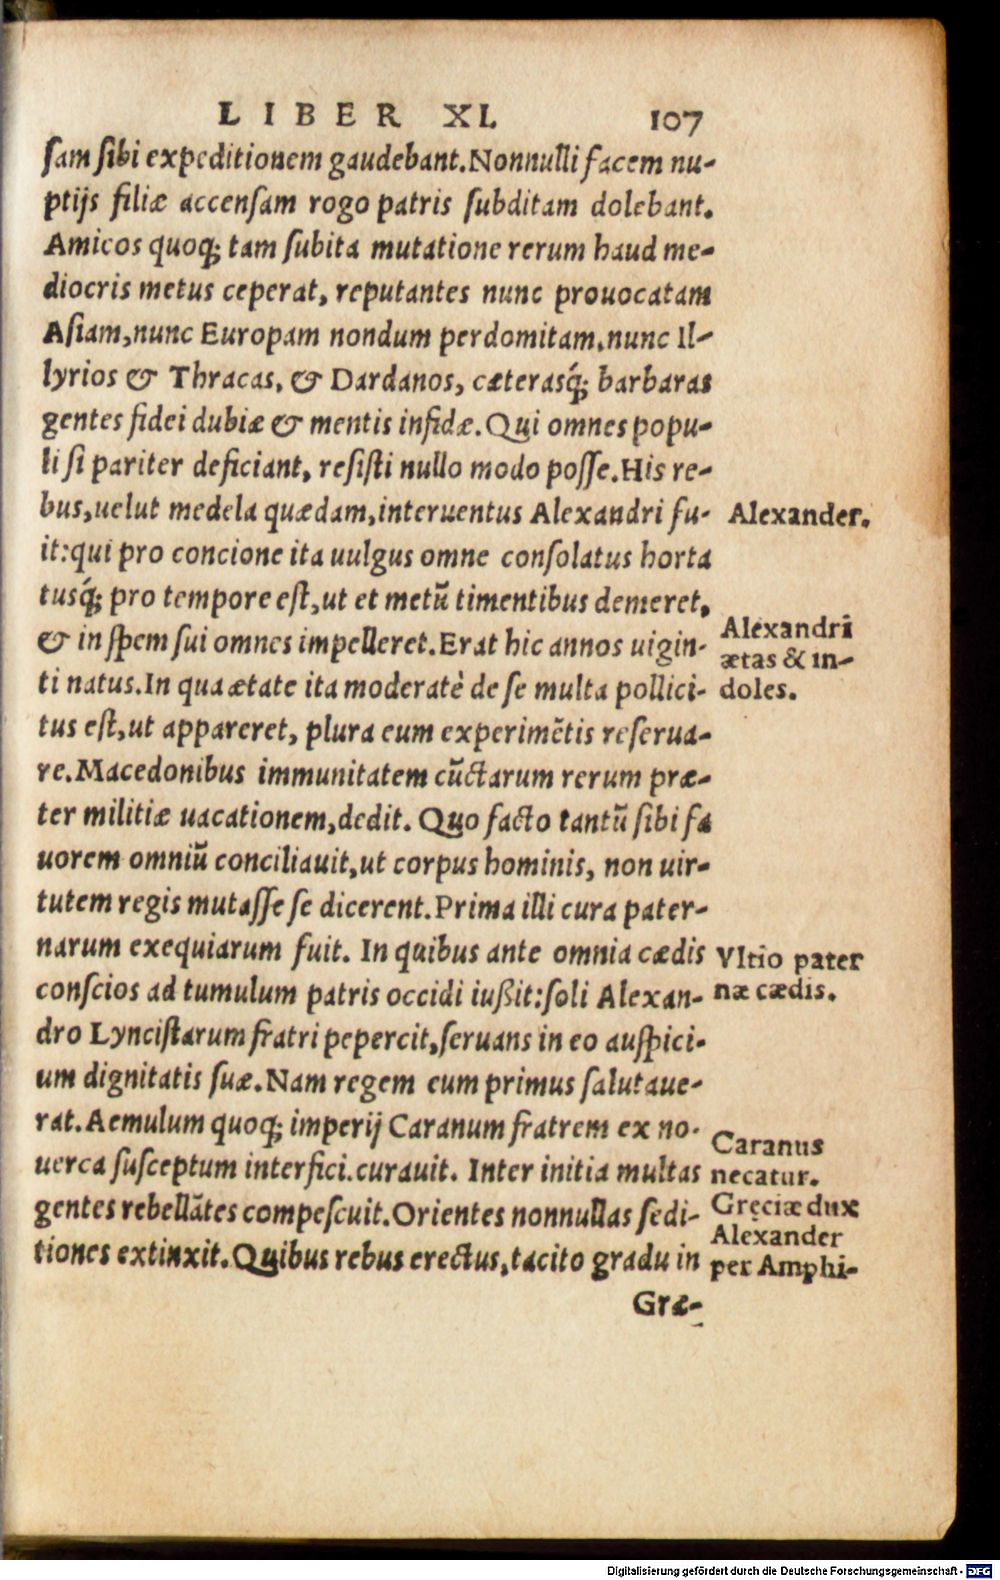 LIBER XI. 107
sam sibi expeditionem gaudebant. Nonnulli facem nu-
ptijs filiæ accensam rogo patris subditam dolebant.
Amicos quoq; tam subita mutatione rerum haud me-
diocris metus ceperat, reputantes nunc prouocatam
Asiam, nunc Europam nondum perdomitam, nunc Il-
lyrios & Thracas, & Dardanos, cæterasq́; barbaras
gentes fidei dubiæ & mentis infidæ. Qui omnes popu-
li si pariter deficiant, resisti nullo modo posse. His re-
bus, uelut medela quædam, interuentus Alexandri fu-
Alexander.
it: qui pro concione ita uulgus omne consolatus horta
tusq́; pro tempore est, ut et metū timentibus demeret,
& in spem sui omnes impelleret. Erat hic annos uigin-
ti natus. In qua ætate ita moderatè de se multa pollici-
Alexandri
ætas & in-
doles.
tus est, ut appareret, plura eum experimẽtis reserua-
re. Macedonibus immunitatem cūctarum rerum præ-
ter militiæ uacationem, dedit. Quo facto tantū sibi fa
uorem omniū conciliauit, ut corpus hominis, non uir-
tutem regis mutasse se dicerent. Prima illi cura pater-
narum exequiarum fuit. In quibus ante omnia cædis
conscios ad tumulum patris occidi iußit: soli Alexan-
Vltio pater
næ cædis.
dro Lyncistarum fratri pepercit, seruans in eo auspici-
um dignitatis suæ. Nam regem eum primus salutaue-
rat. Aemulum quoq; imperij Caranum fratrem ex no-
uerca susceptum interfici.curauit. Inter initia multas
Caranus
necatur.
gentes rebellātes compescuit. Orientes nonnullas sedi-
tiones extinxit. Quibus rebus erectus, tacito gradu in
Gręciæ dux
Alexander
per Amphi-
Græ-
Digitalisierung gefördert durch die Deutsche Forschungsgemeinschaft - DFG